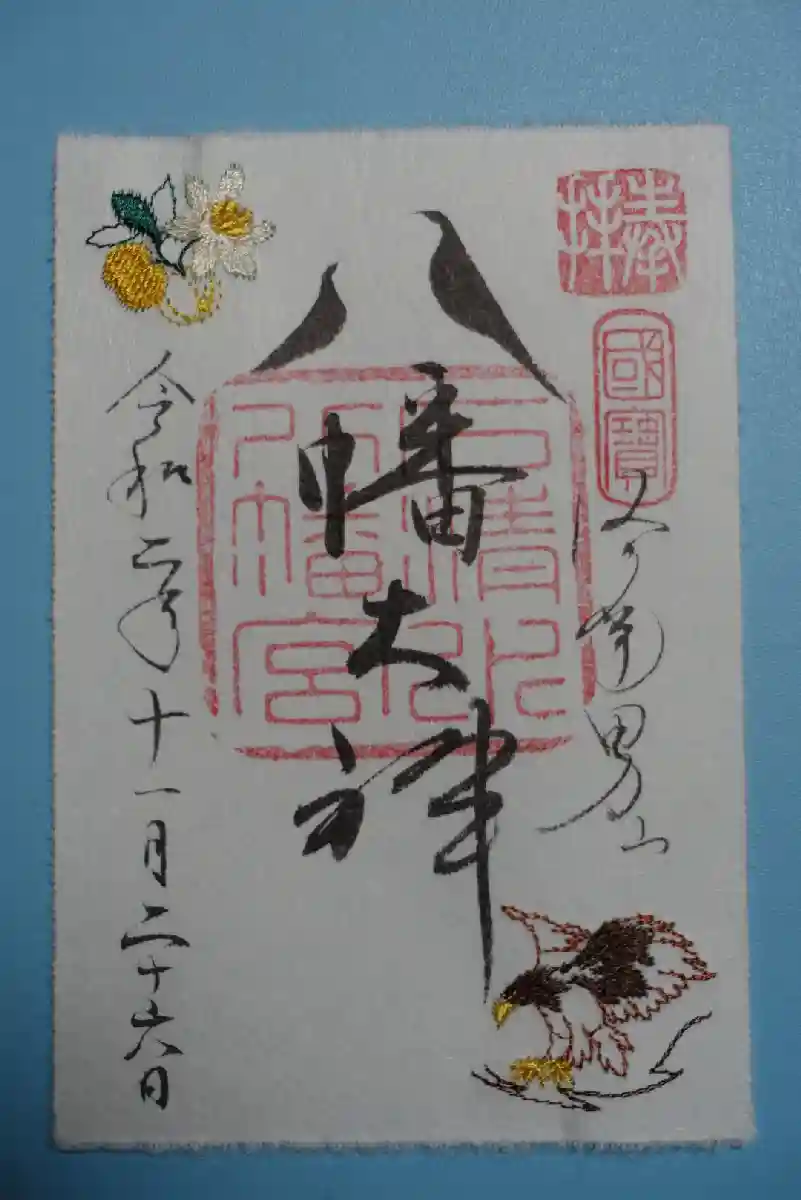 奉拝
國寶
男山
八幡大神
石清水八幡宮
令和二年十一月二十六日